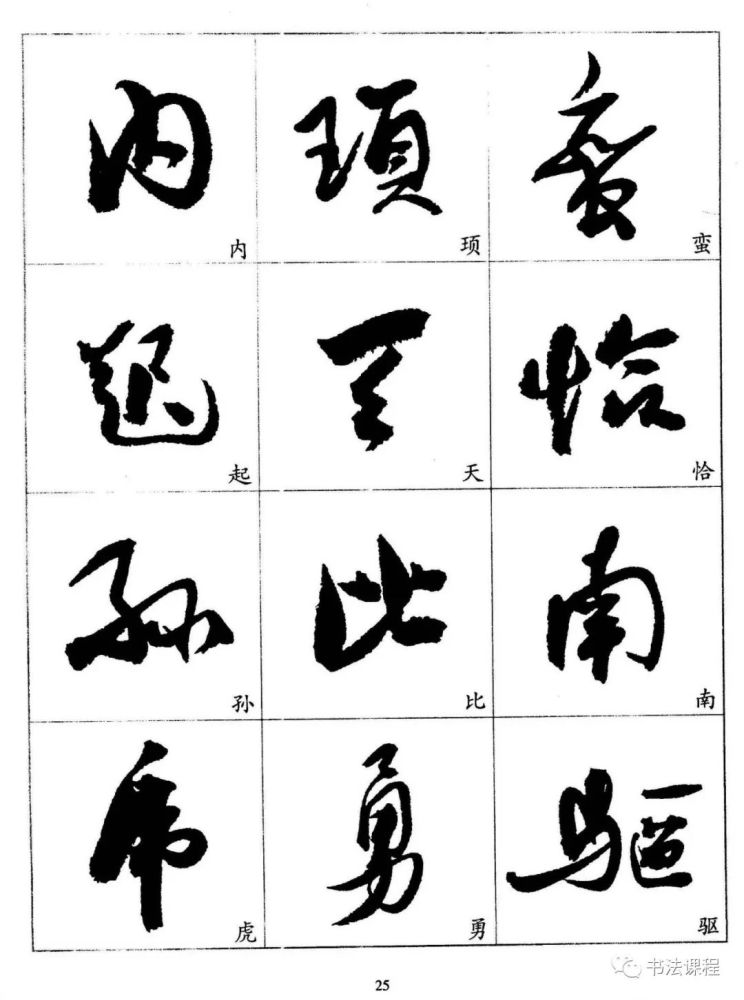 内 頊 蛮
内 顼 蛮
起 天 恰
起 天 恰
孫 比 南
孙 比 南
虎 勇 驅
虎 勇 驱
25
书法课程